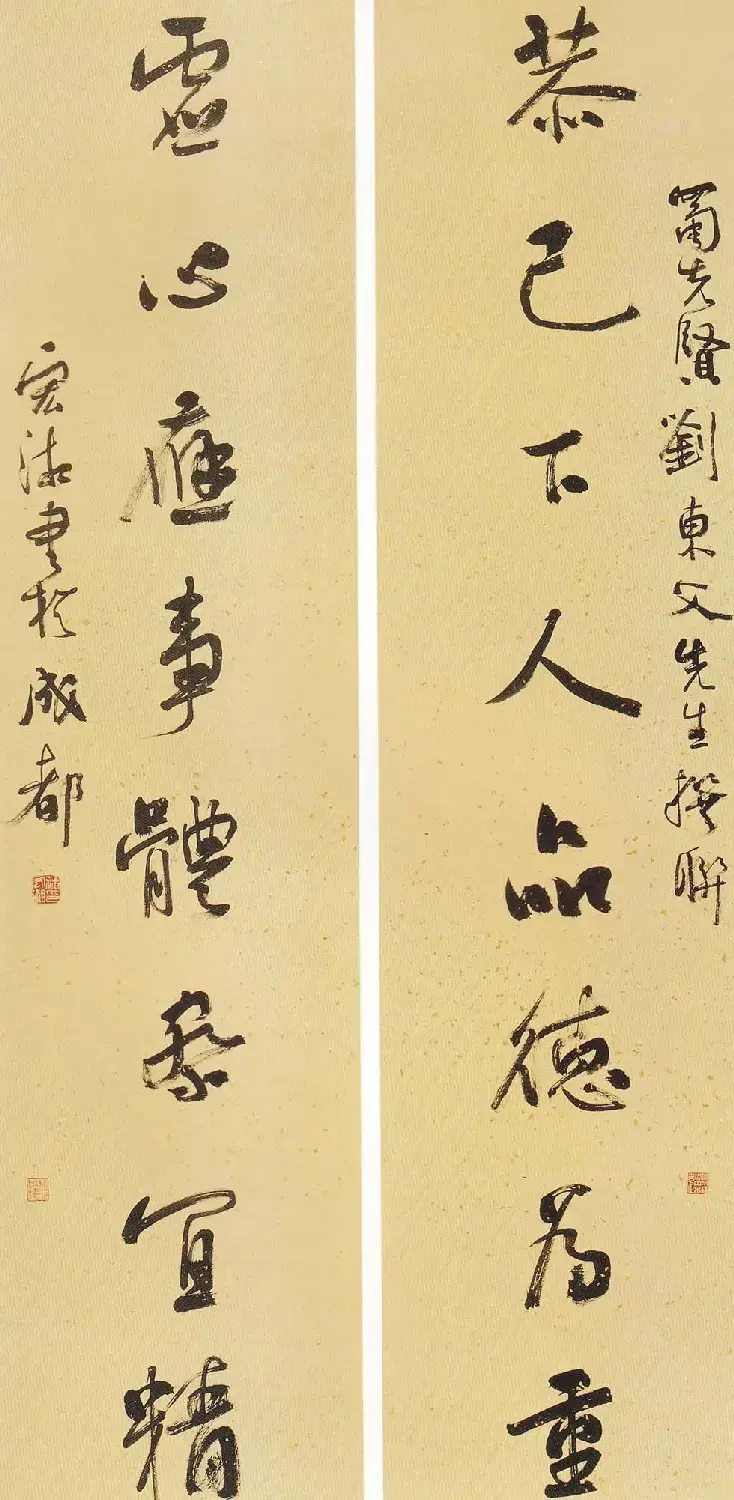 蜀先賢劉東父先生撰聯
恭己下人品德為重
虛心應事體察宜精
書於成都